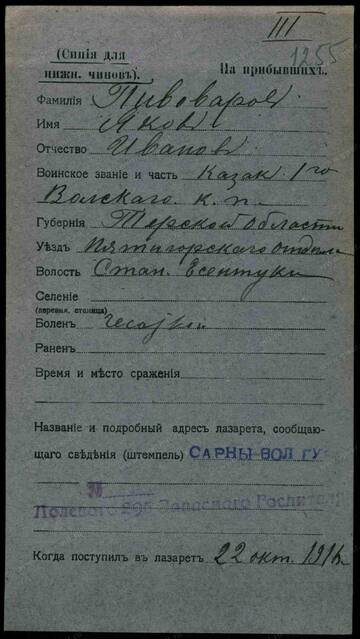 III
1255
(Синія для
нижн. чиновъ).
На прибывшихъ.
Фамилія Пивоваров
Имя Яков
Отчество Иванов
Воинское званіе и часть Казак 1го
Волскаго к. п.
Губернія Терской области
Уѣздъ Пятигорскаго отдѣла
Волость Стан. Есентуки
Селеніе
(деревня, станица)
Боленъ
Раненъ
Время и мѣсто сраженія
Названіе и подробный адресъ лазарета, сообщаю-
щаго свѣдѣнія (штемпель) САРНЫ ВОЛ ГУ
Полевого Запаснаго Госпиталя
Когда поступилъ въ лазаретъ 22 окт. 1916